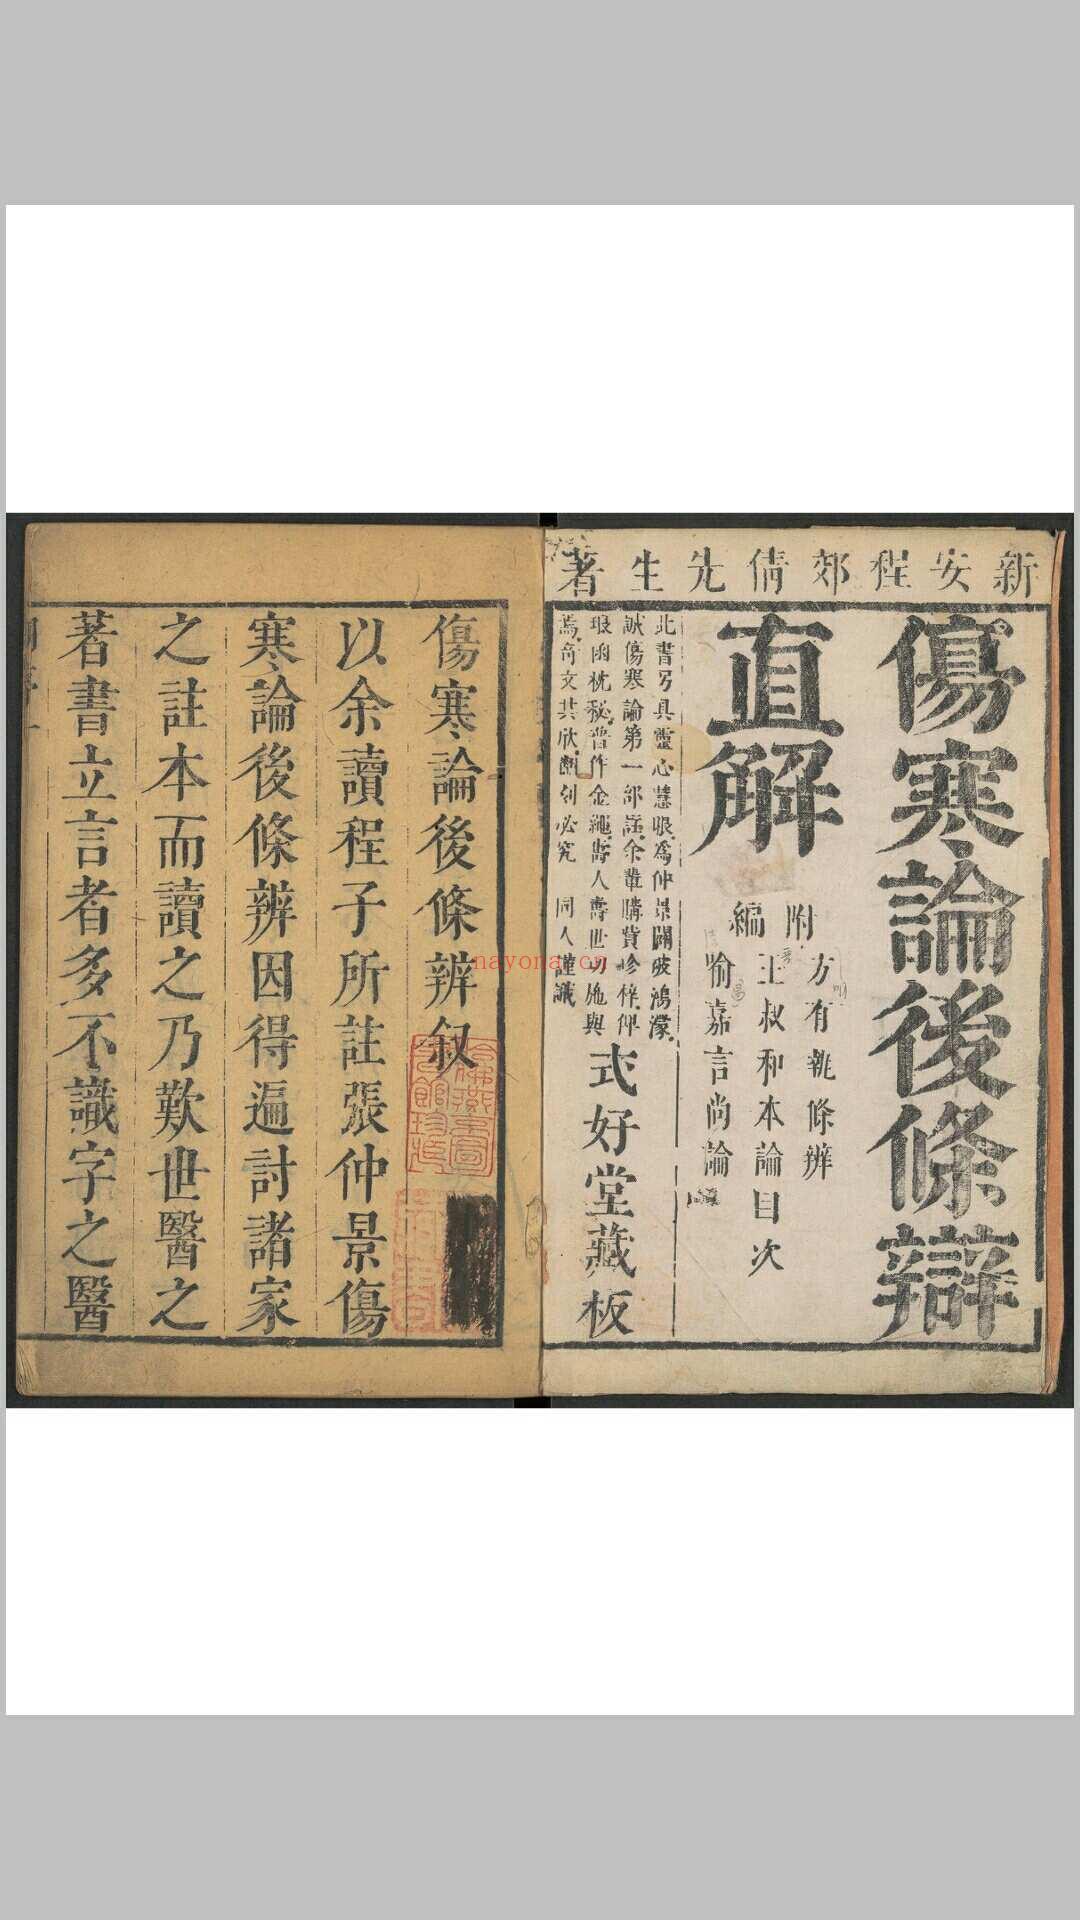 新安程郊倩先生著
傷寒論後條辯
直解
附編
方有執條辨
王叔和本論目次
喻嘉言尚論篇
此書另具靈心慧眼為仲景闢破鴻濛
誠傷寒論第一部註余輩購貲珍梓仰
琅函枕秘普作金繩壽人壽世功施與
焉奇文共欣翻刻必究 同人謹識
式好堂藏板
傷寒論後條辨叙
以余讀程子所註張仲景傷
寒論後條辨因得遍討諸家
之註本而讀之乃歎世醫之
著書立言者多不識字之醫
哈佛燕京圖書館珍藏
nayona.cn